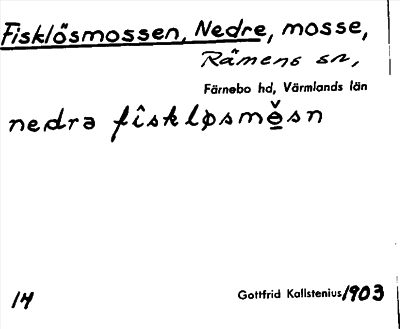 Fisklösmossen, Nedre, mosse,
Rämens sn,
Färnebo hd, Värmlands län
nedrə fîskløsmə̣̌sn
14 Gottfrid Kallstenius 1903